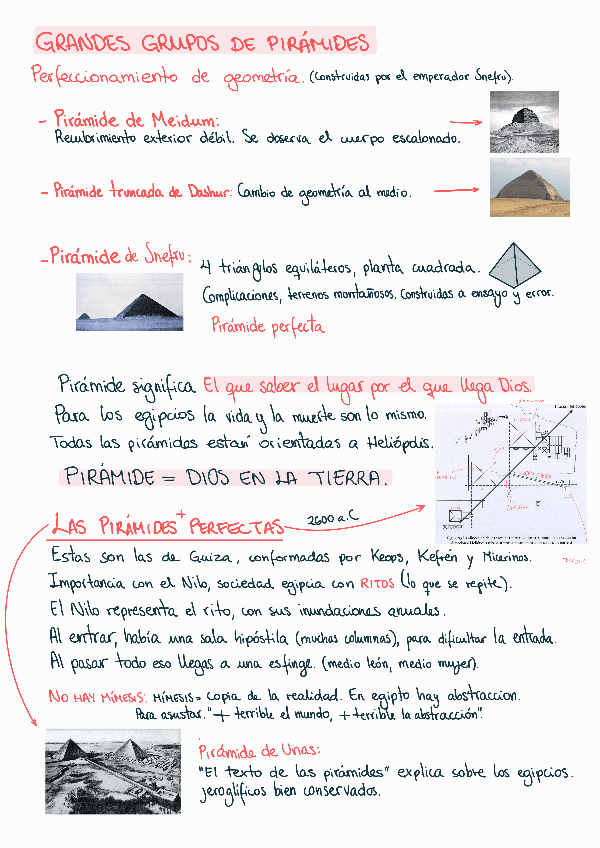 GRANDES GRUPOS DE PIRÁMIDES
Perfeccionamiento de geometría. (Construidas por el emperador Snefru).
- Pirámide de Meidum:
Recubrimiento exterior débil. Se observa el cuerpo escalonado.
- Pirámide truncada de Dashur: Cambio de geometría al medio.
- Pirámide de Snefru:
4 triángulos equiláteros, planta cuadrada.
Complicaciones, terrenos montañosos. Construidas a ensayo y error.
Pirámide perfecta
Pirámide significa El que saber el lugar por el que llega Dios.
Para los egipcios la vida y la muerte son lo mismo.
Todas las pirámides estan orientadas a Heliópolis.
PIRÁMIDE = DIOS EN LA TIERRA.
LAS PIRÁMIDES + PERFECTAS
2600 a.C
Estas son las de Guiza, conformadas por Keops, Kefrén y Micerinos.
Importancia con el Nilo, sociedad egipcia con RITOS (lo que se repite).
El Nilo representa el rito, con sus inundaciones anuales.
Al entrar, había una sala hipóstila (muchas columnas), para dificultar la entrada.
Al pasar todo eso llegas a una esfinge. (medio león, medio mujer).
NO HAY MÍMESIS: MÍMESIS= copia de la realidad. En egipto hay abstraccion.
Para asustar. "+ terrible el mundo, + terrible la abstracción".
Pirámide de Unas:
"El texto de las pirámides" explica sobre los egipcios.
jeroglíficos bien conservados.